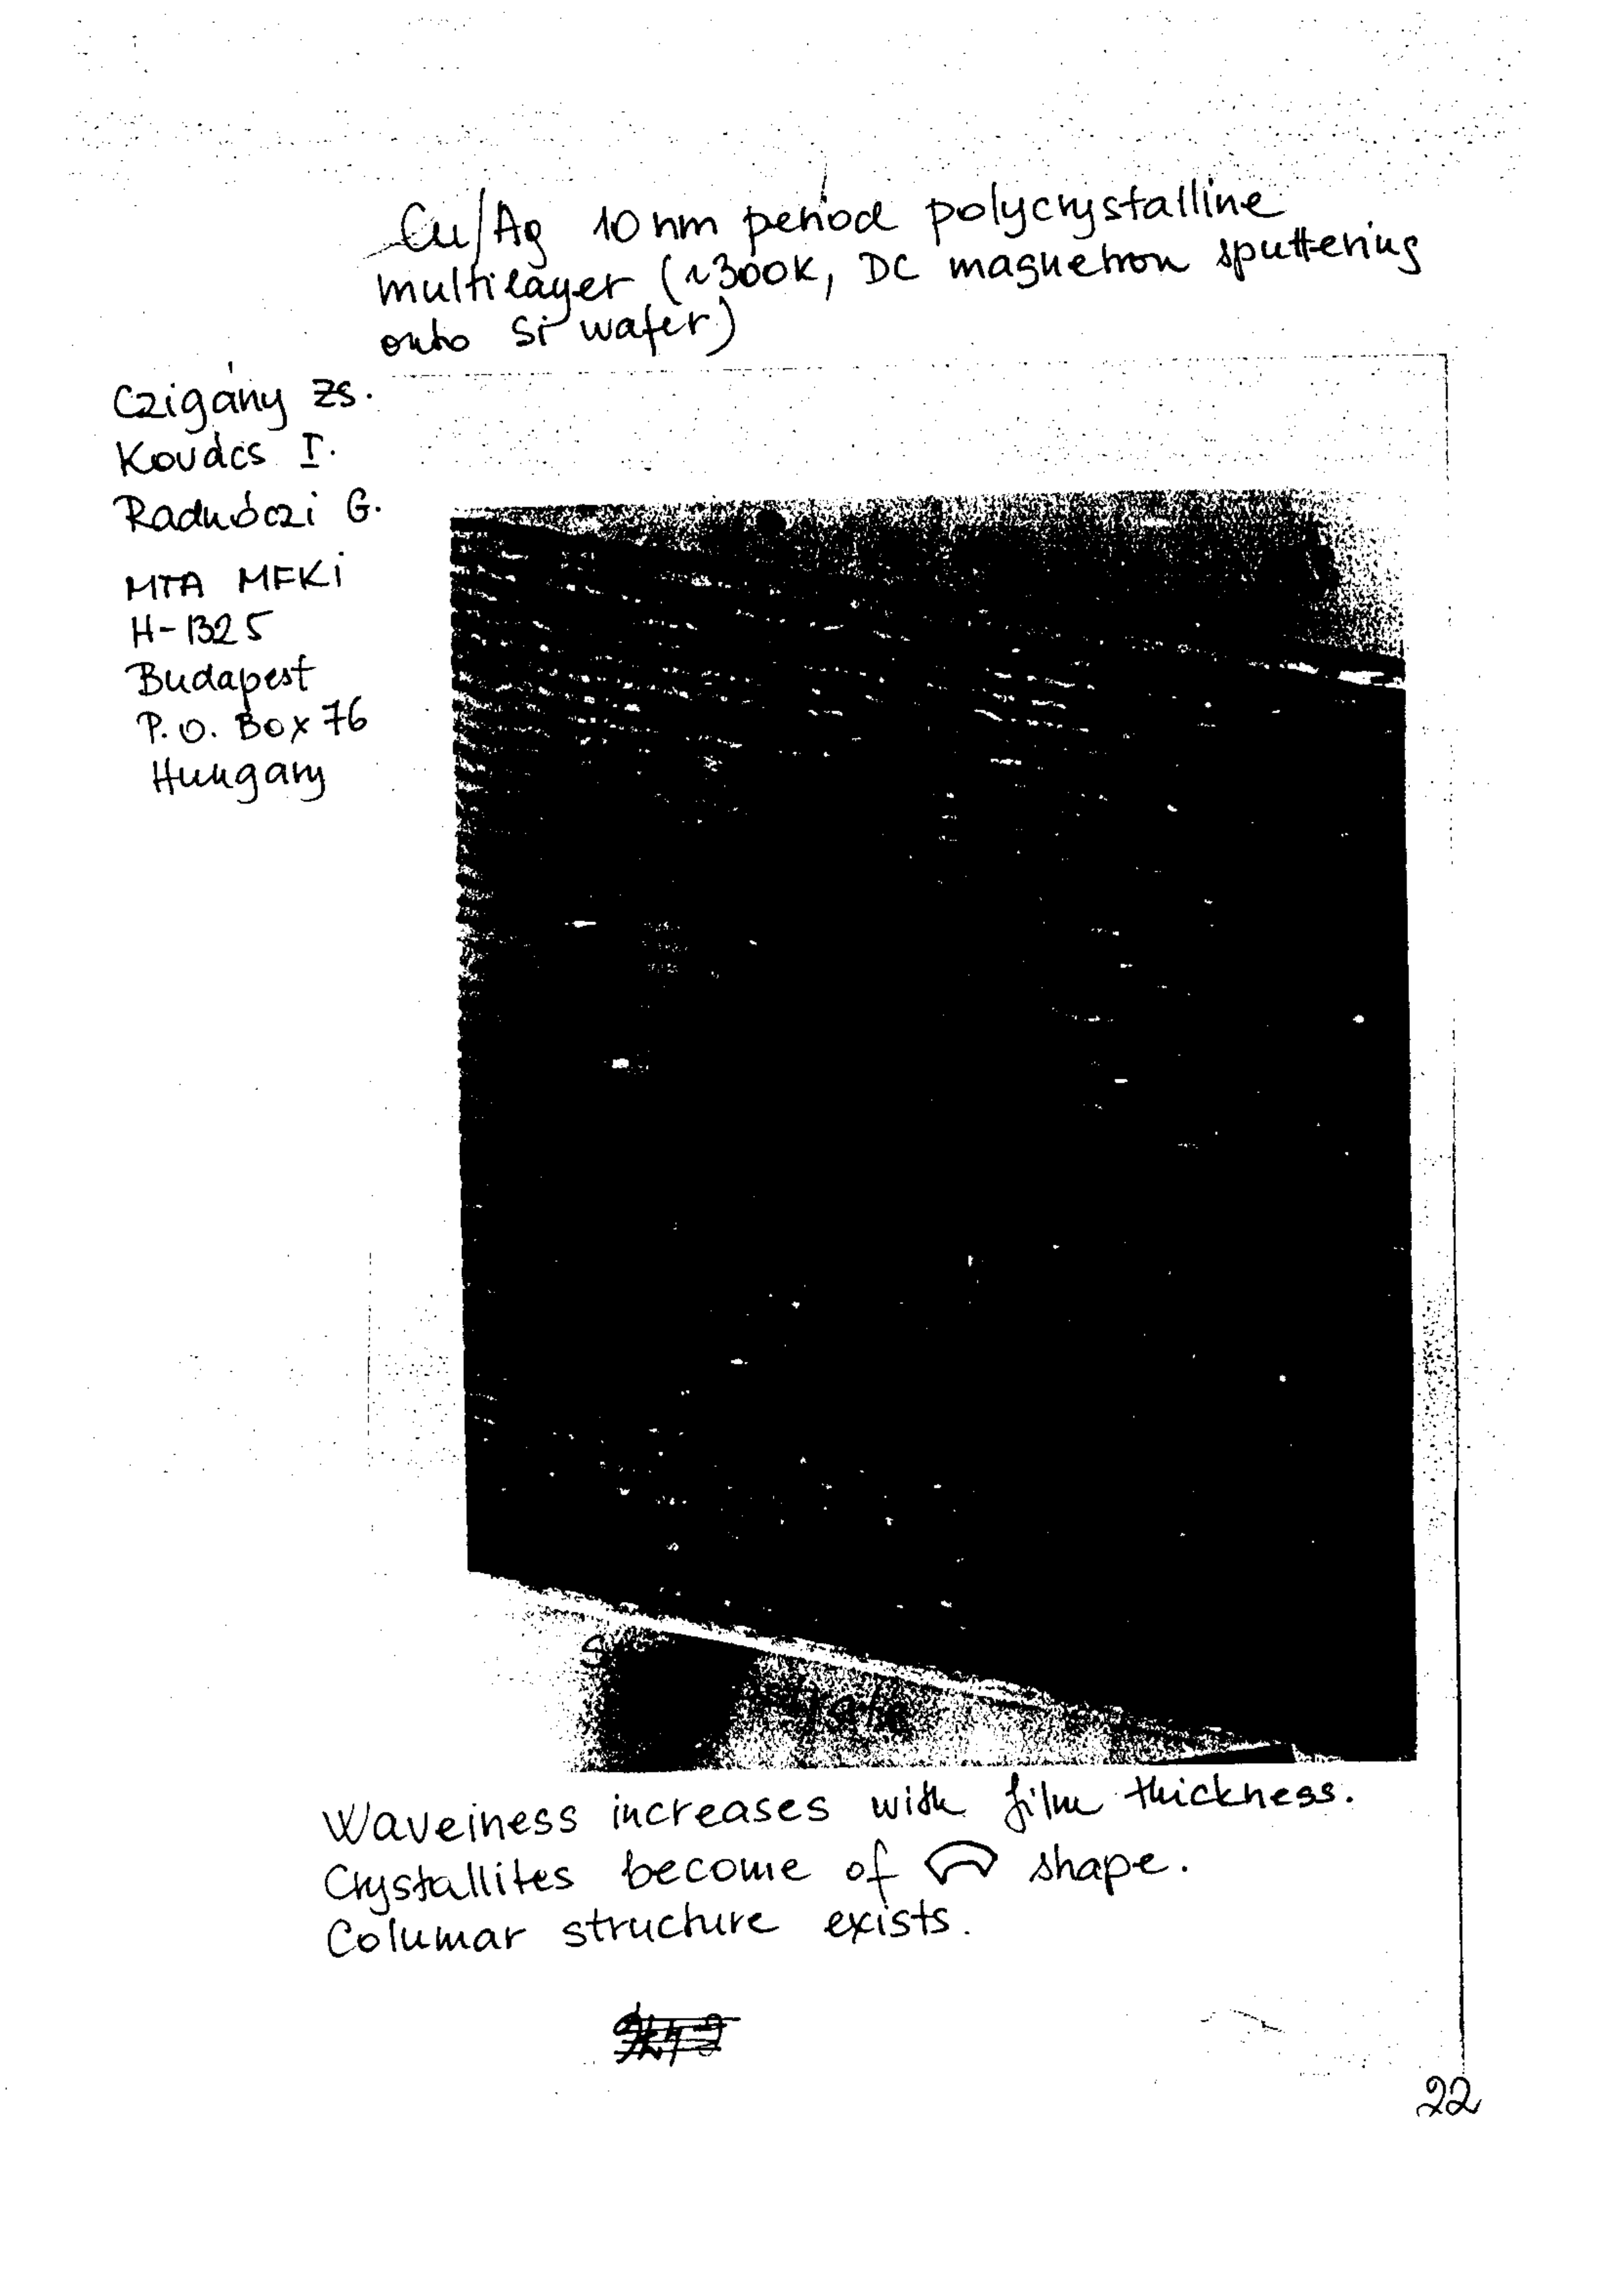 Cu/Ag 10nm period polycrystalline
multilayer (~300K, DC magnetron sputtering
onto Si wafer)
Czigány Zs.
Kovács I.
Radnóczi G.
MTA MFKI
H-1325
Budapest
P.O. Box 76
Hungary
Waveiness increases with film thickness.
Crystallites become of shape.
Columar structure exists.
22